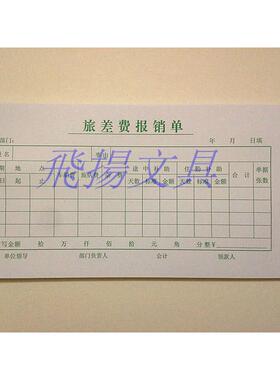 旅差费报销单
部门： 年 月 日填
姓名 事由
飛揚文具
日期 地点 途中补助 住勤补助 合计 单据张数
日 起 止 天数 标准 金额 天数 标准 金额
写金额 拾 万 仟 佰 拾 元 角 分整￥
单位领导 部门负责人 会计 领款人